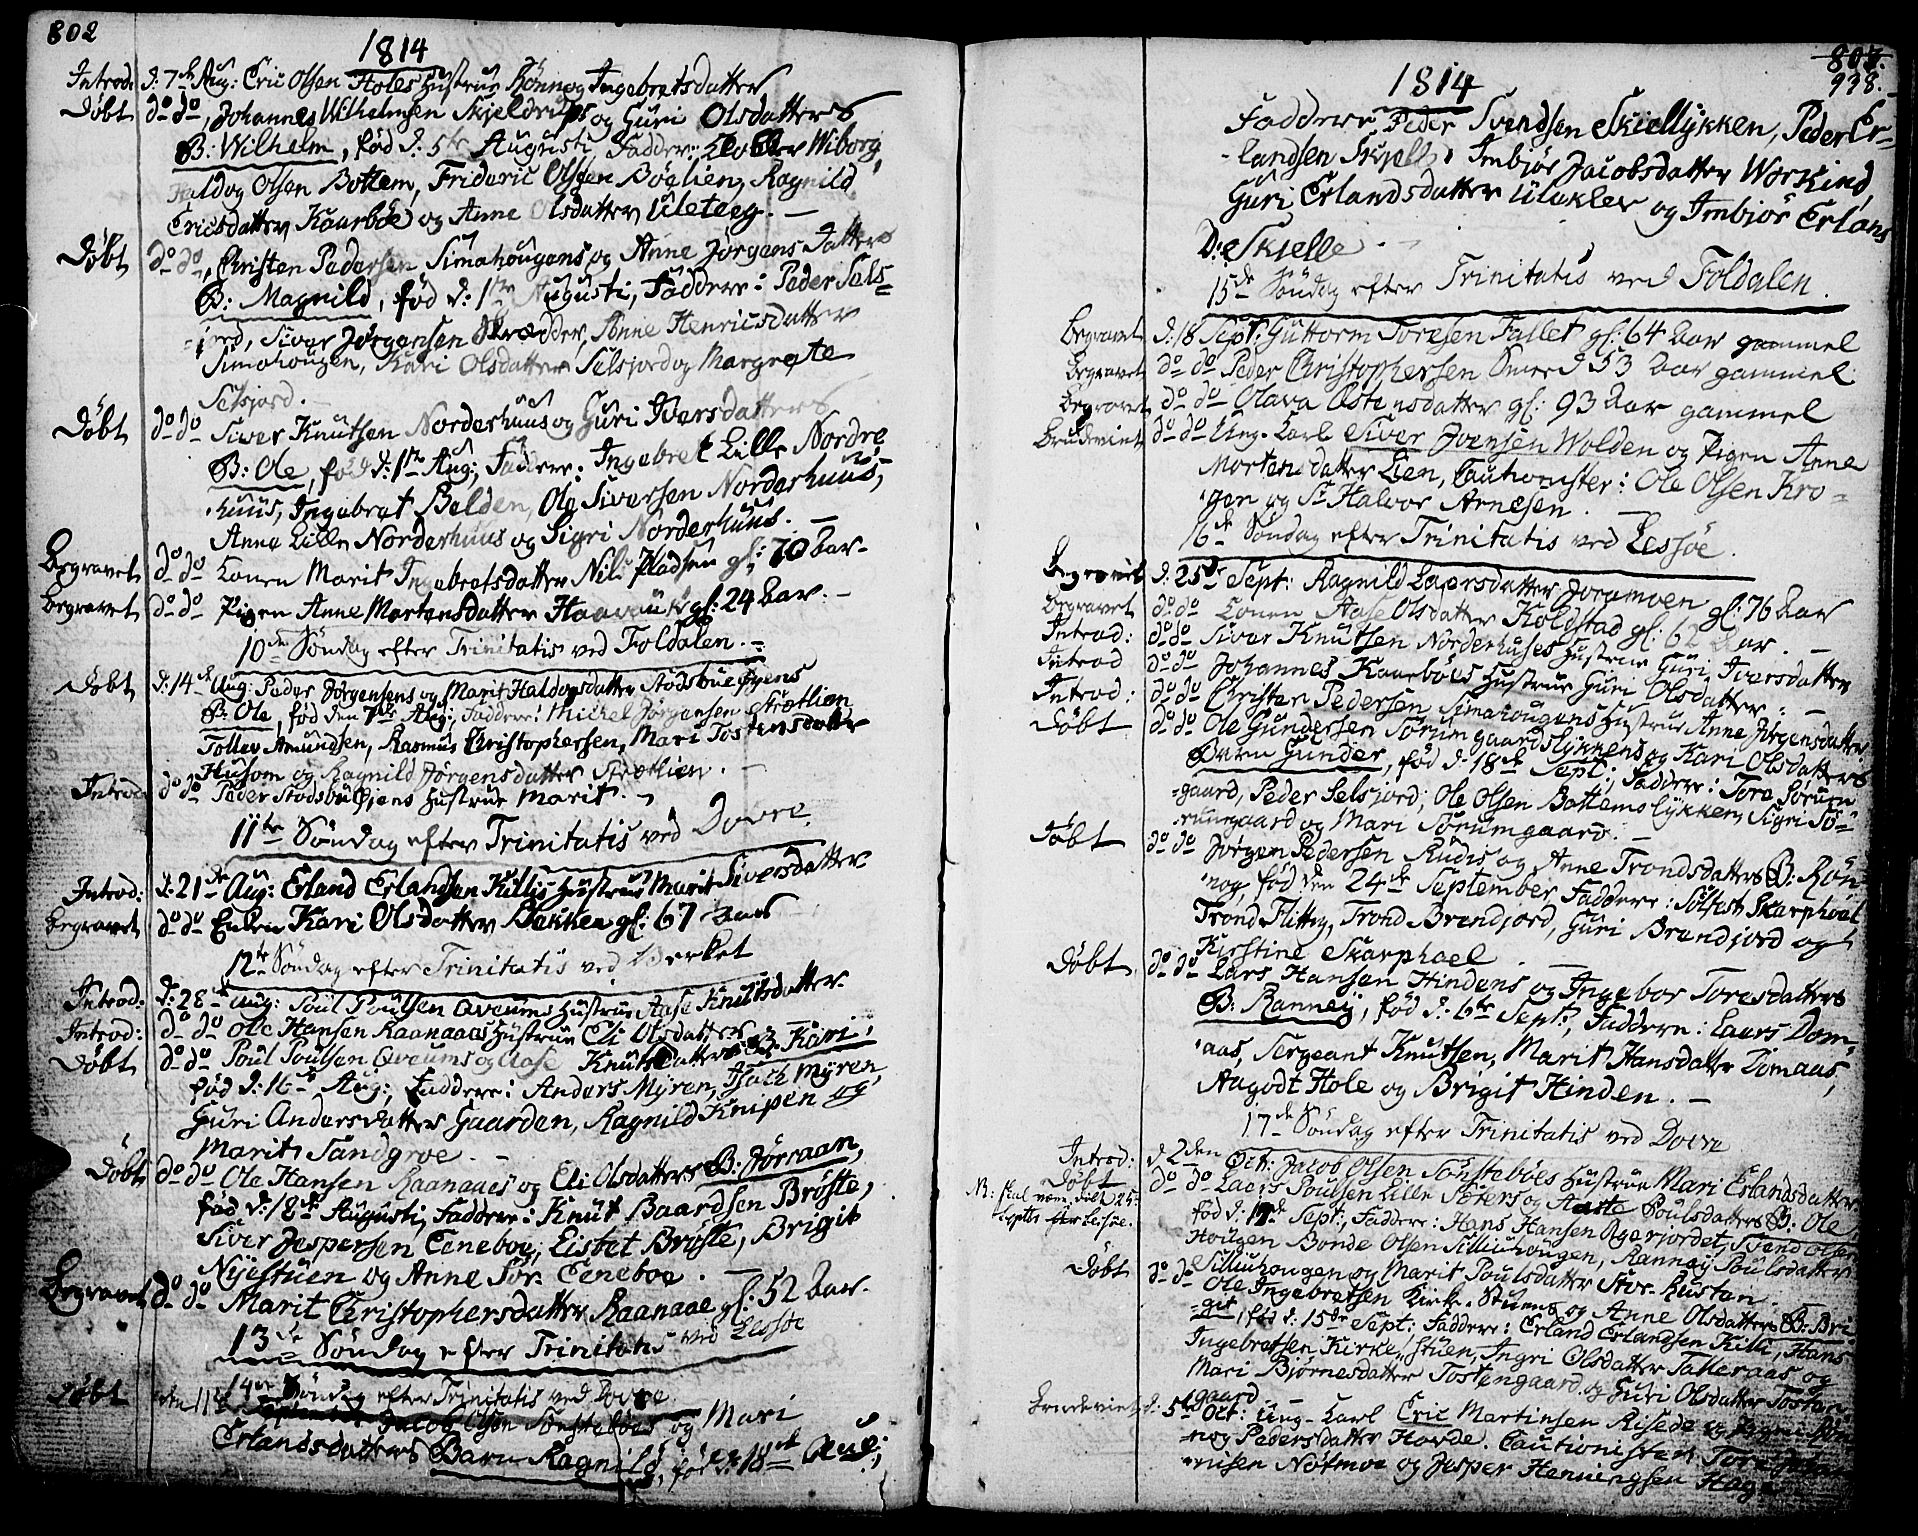 802
1814
Introd: d: 7de Aug: Eric Olsen Holes Hustrue Rönnog Ingebretsdatter
Døbt do do, Johannes Wilhelmsen Skjeldrups og Guri Olsdatters
B: Wilhelm, fød d: 5te Augusti Faddere: Wiborg,
Haldog Olsen Bottem, Frideric Olsen Böelien, Ragnild
Ericsdatter Kaarböe og Anne Olsdatter Uleteeg. —
Døbt do do, Christen Pedersen Simahougens og Anne Jørgens Datters
B: Magnild, fød d: 1te Augusti, Faddere: Peder Sels=
=jord, Siver Jørgensen Skrædder, Anne Henricsdatter
Simahougen, Kari Olsdatter Selsjord og Margrete
Selsjord. —
Døbt do do Siver Knutsen Norderhuus og Guri Iversdatters
B: Ole, fød d: 1te Aug: Faddere: Ingebret Lille Nordre
huus, Ingebret Belden, Ole Siversen Norderhuus,
Anne Lille Norderhuus og Sigri Norderhuus. —
Begravet do do Konen Marit Ingebretsdatter Nils Pladsen gl: 70 Aar —
Begravet do do Pigen Anne Mortensdatter gl: 24 Aar. —
10de Søndag efter Trinitatis ved Foldalen. —
Døbt d: 14de Aug: Peder Jørgensens og Marit Haldogsdatter Stodsbueøyens
B: Ole, fød den 7de Aug: Faddere: Michel Jørgensen Strætlien
Tollev Amundsen, Rasmus Christophersen, Mari Tostensdatter
Husom og Ragnild Jørgensdatter Strætlien. —
Introd do do Peder Stodsbuøjens Hustrue Marit. —
11te Søndag efter Trinitatis ved Dovre.
Introd: d: 21de Aug: Erland Erlandsen Killis Hustrue Marit Siversdatter
Begravet do do Enken Kari Olsdatter Bakken gl: 67 Aar
12te Søndag efter Trinitatis ved Werket
Introd: d: 28de Aug: Poul Poulsen Qveums Hustrue Aase Knutsdatter.
Introd: do do Ole Hansen Raanaaes Hustrue Eli Olsdatter
Døbt do do Poul Poulsen Qveums og Aase Knutsdatters B: Kari,
fød d: 16de Aug: Faddere: Anders Myren, Isach Myren,
Guri Andersdatter Gaarden, Ragnild Knipen og
Marit Sandgroe. —
Døbt do do Ole Hansen Raanaaes og Eli Olsdatters B: Jørraan,
fød d: 18de Augusti, Faddere: Knut Baardsen Brøste,
Siver Jespersen Eeneboe, Lisbet Brøste, Brigit
Nyestuen og Anne Sør Eeneboe. —
Begravet do do Marit Christophersdatter Raanaae gl: 52 Aar.
13de Søndag efter Trinitatis ved Lessøe
14de Søndag efter Trinitatis ved Dovre
Døbt den 11te Jacob Olsen Sønsteboes og Mari
Erlandsdatters Barn Ragnild, fød d: 18de Aug;
803.
938.
1814
Faddere Peder Svendsen Skiellykken, Peder Er=
=landsen Skjelle, Ambjør Jacobsdatter Workind
Guri Erlandsdatter Ulukler og Ambjør Erlans
D: Skjelle. —
15de Søndag efter Trinitatis ved Foldalen.
Begravet d: 18 Sept: Guttorm Toresen Fallet gl: 64 Aar gammel
Begravet do do Peder Christophersen Smed 53 Aar gammel
Begravet do do Olava Ostensdatter gl: 93 Aar gammel
Brudeviet do do Ung-Karl Siver Joensen Wolden og Pigen Anne
Mortensdatter Lien, Cautionister: Ole Olsen Kro=
gen og Sr Halvor Arnesen.
16de Søndag efter Trinitatis ved Lessøe.
Begravet d: 25de Sept: Ragnild Laersdatter Joramoen gl: 76 Aar
Begravet do do Konen Aase Olsdatter Holdstad gl: 62 Aar. —
Introd: do do Siver Knutsen Norderhuses Hustrue Guri Iversdatter
Introd do do Johannes Kaarböes Hustrue Guri Olsdatter: —
Introd: do do Christen Pedersen Simahougens Hustrue Anne Jørgensdatter
Døbt do do Ole Gundersen Sørumgaardslykkens og Kari Olsdatters
Barn Gunder, fød d: 18de Sept; Faddere: Tore Sørum
=gaard, Peder Selsjord, Ole Olsen Bottemslykken, Sigri Sö=
rumgaard og Mari Sörumgaard. —
Døbt do do Jørgen Pedersen Rudis og Anne Trondsdatters B: Rön=
nog, fød den 24de September, Faddere: Solfest Skarphoel
Trond Flittig, Trond Brandjord, Guri Brandjord og
Kirstine Skarphoel
Døbt do do Lars Hansen Hindens og Ingebor Toresdatters
B: Ranney, fød d: 6te Sept:, Faddere: Laers Dom=
aas, Sergeant Knutsen, Marit Hansdatter Domaas,
Aagodt Hole og Brigit Hinden. —
17de Søndag efter Trinitatis ved Dovre
Introd: d 2den Oct: Jacob Olsen Sønsteböes Hustrue Mari Erlandsdatter
Døbt do do Laers Poulsen Lille og Aaste Poulsdatters B: Ole,
NB: skal være døbt d 25
Septbr for Lessøe.
fød d: 17de Sept; Faddere: Hans Hansen Agerjordet, Svend Olsen
Hougen Bonde Olsen Silliuhougen, Ranney Poulsdatter
Silliuhougen og Marit Poulsdatter Stor-Rustan.
Døbt do do Ole Ingebretsen Kirke-Stuens og Anne Olsdatters B: Bri-
=git, fød d: 15de Sept: Faddere: Erland Erlandsen Killi, Hans
Ingebretsen Kirke-Stuen, Ingri Olsdatter Talleraas og
Mari Bjørnesdatter Tostengaard og Guri Olsdatter Tosten
gaard —
Brudeviet d: 5te Oct: Ung-Karl Eric Martinsen Risede og Pigen Røn
=nog Pedersdatter Horde. Cautionister Tore
Notmoe og Jesper Henningsen Hage